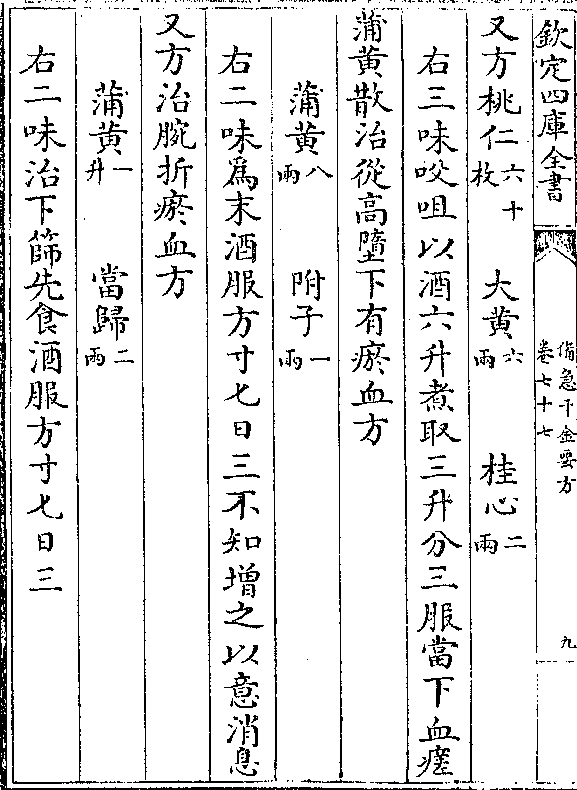 欽定四庫全書
備急千金要方
卷七十七
九
又方桃仁六十枚　大黄六兩　桂心二兩
右三味㕮咀以酒六升煮取三升分三服當下血瘥
蒲黄散治從高墮下有瘀血方
蒲黄八兩　附子一兩
右二味為末酒服方寸匕日三不知增之以意消息
又方治腕折瘀血方
蒲黄一升　當歸二兩
右二味治下篩先食酒服方寸匕日三